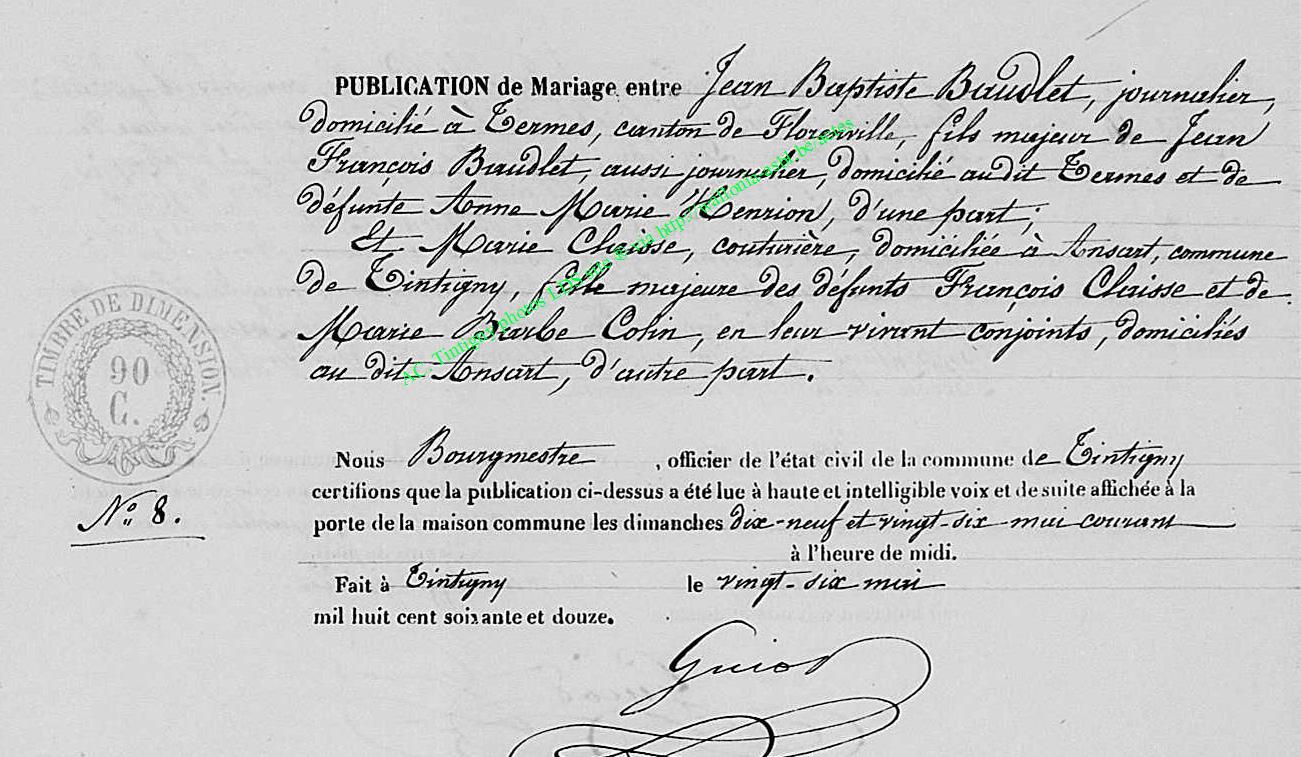 PUBLICATION de Mariage entre Jean Baptiste Baudlet, journalier,
domicilié à Termes, canton de Florenville, fils majeur de Jean
François Baudlet, aussi journalier, domicilié au dit Termes et de
défunte Anne Marie Henrion, d'une part;
Et Marie Claisse, couturière, domiciliée à Ansart, commune
de Tintigny, fille majeure des défunts François Claisse et de
Marie Barbe Colin, en leur vivant conjoints, domiciliés
au dit Ansart, d'autre part.
TIMBRE DE DIMENSION.
90
C.
N° 8.
Nous Bourgmestre, officier de l'état civil de la commune de Tintigny
certifions que la publication ci-dessus a été lue à haute et intelligible voix et de suite affichée à la
porte de la maison commune les dimanches dix-neuf et vingt-six mai courant
à l'heure de midi.
Fait à Tintigny le vingt-six mai
mil huit cent soixante et douze.
Guiot
AC. Tintigny photos LDS via http://wallonia-asbl.be/actes